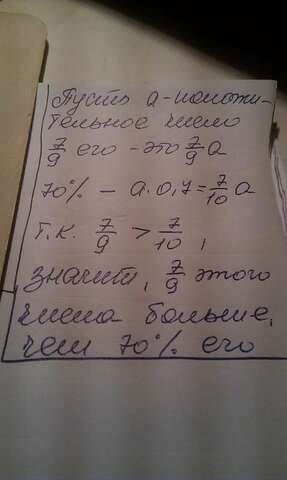 Пусть a - положи-
тельное число
7/9 его - это 7/9 a
70% - a·0,7 = 7/10 a
Т.к. 7/9 > 7/10,
значит, 7/9 этого
числа больше,
чем 70% его